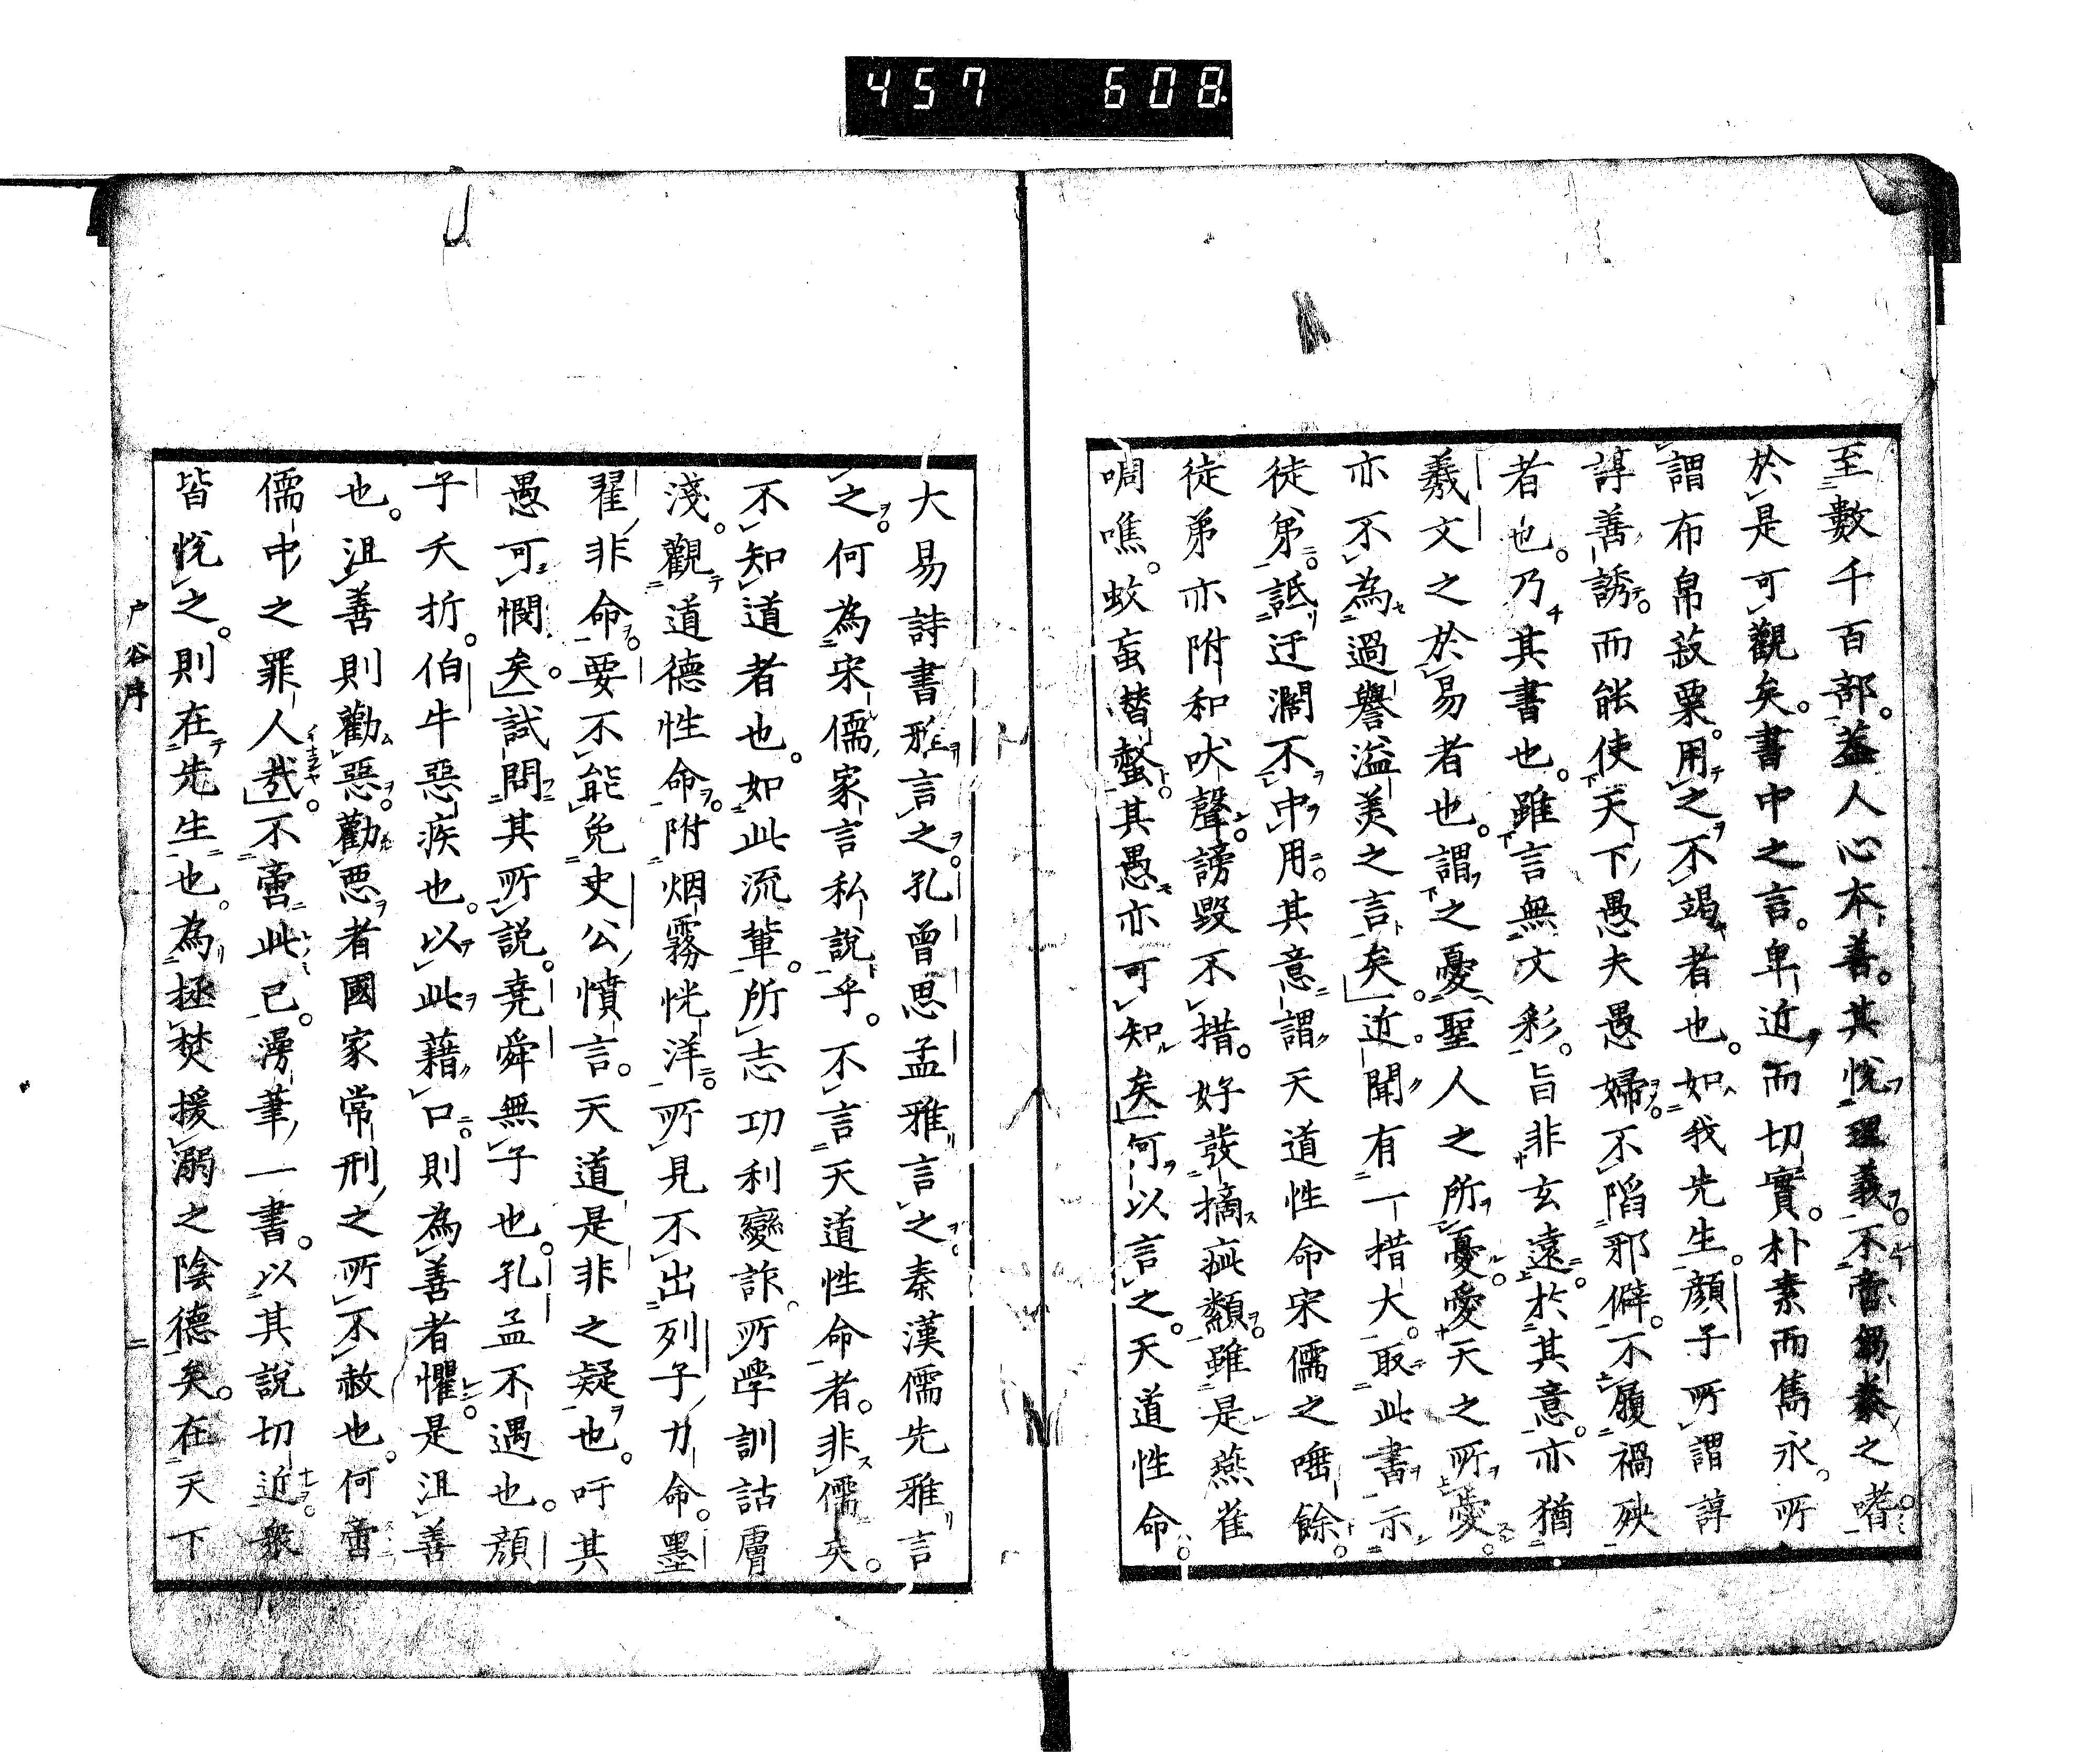 457 608
至數千百部。葢人心本善。其悅理義。不啻芻豢之嗜。
於是可觀矣。書中之言。卑近而切實。朴素而雋永。所
謂布帛菽粟。用之不竭者也。如我先生。顏子所謂諄
諄善誘。而能使天下愚夫愚婦不陷邪僻。不履禍殃
者也。乃其書也。雖言無文彩。旨非玄遠。於其意。亦猶
羲文之於易者也。謂之憂聖人之所憂。愛天之所愛。
亦不為過譽溢美之言矣。近聞有一措大。取此書示
徒弟。詆迂濶不中用。其意謂天道性命宋儒之唾餘。
徒弟亦附和吠聲。謗毀不措。好發摘疵纇。雖是燕雀
啁噍。蚊蝱螫。其愚亦可知矣。何以言之。天道性命。
大易詩書形言之。孔曾思孟雅言之。秦漢儒先雅言
之。何為宋儒家言私說乎。不言天道性命者。非儒矣。
不知道者也。如此流輩。所志功利變詐。所學訓詁膚
淺。觀道德性命。附烟霧恍洋。所見不出列子力命。墨
翟非命。要不能免史公憤言。天道是非之疑也。吁其
愚可憫矣。試問其所說。堯舜無子也。孔孟不遇也。顏
子夭折。伯牛惡疾也。以此藉口。則為善者懼。是沮善
也。沮善則勸惡。勸惡者國家常刑之所不赦也。何啻
儒中之罪人哉。不啻此已。漫筆一書。以其說切近。衆
皆悅之。則在先生也。為拯焚援溺之陰德矣。在天下
戶谷序
二